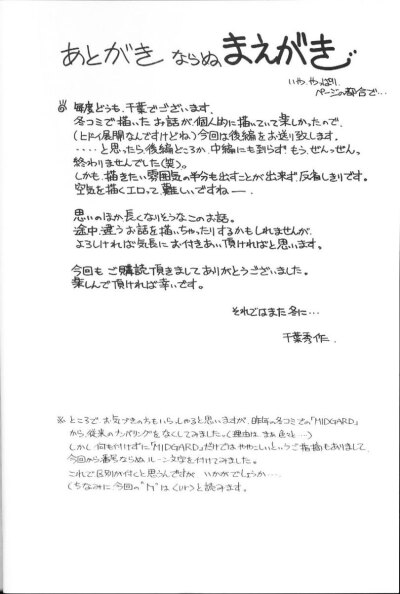 あとがき ならぬ まえがき
いや、やっぱり
ページの都合で…
毎度どうも、千葉でございます。
冬コミで描いたお話が、個人的に描いていて楽しかったので、
(ヒドイ展開なんですけどね)今回は後編をお送り致します。
‥‥と思ったら後編どころか、中編にも到らず、もう、ぜんっぜん、
終わりませんでした(笑)。
しかも、描きたい雰囲気の半分も出すことが出来ず、反省しきりです。
空気を描くエロって、難しいですねー
思いのほか長くなりそうなこのお話。
途中、違うお話を描いちゃったりするかもしれませんが、
よろしければ気長にお付きあい頂ければと思います。
今回も ご購読頂きましてありがとうございました。
楽しんで頂ければ幸いです。
それではまた冬に…
千葉秀作.
※ ところで、お気づきの方もいらっしゃると思いますが、昨年の冬コミでの「MIDGARD」
から、従来のナンバリングをなくしてみました。(理由は、まあ色々と…)
しかし、何も付けずに「MIDGARD」だけではややこしいというご指摘もありまして、
今回から番号ならぬ ルーン文字を付けてみました。
これで区別が付くと思うんですが、いかがでしょうか…
(ちなみに今回の"ᚢ"は<ur>と読みます。